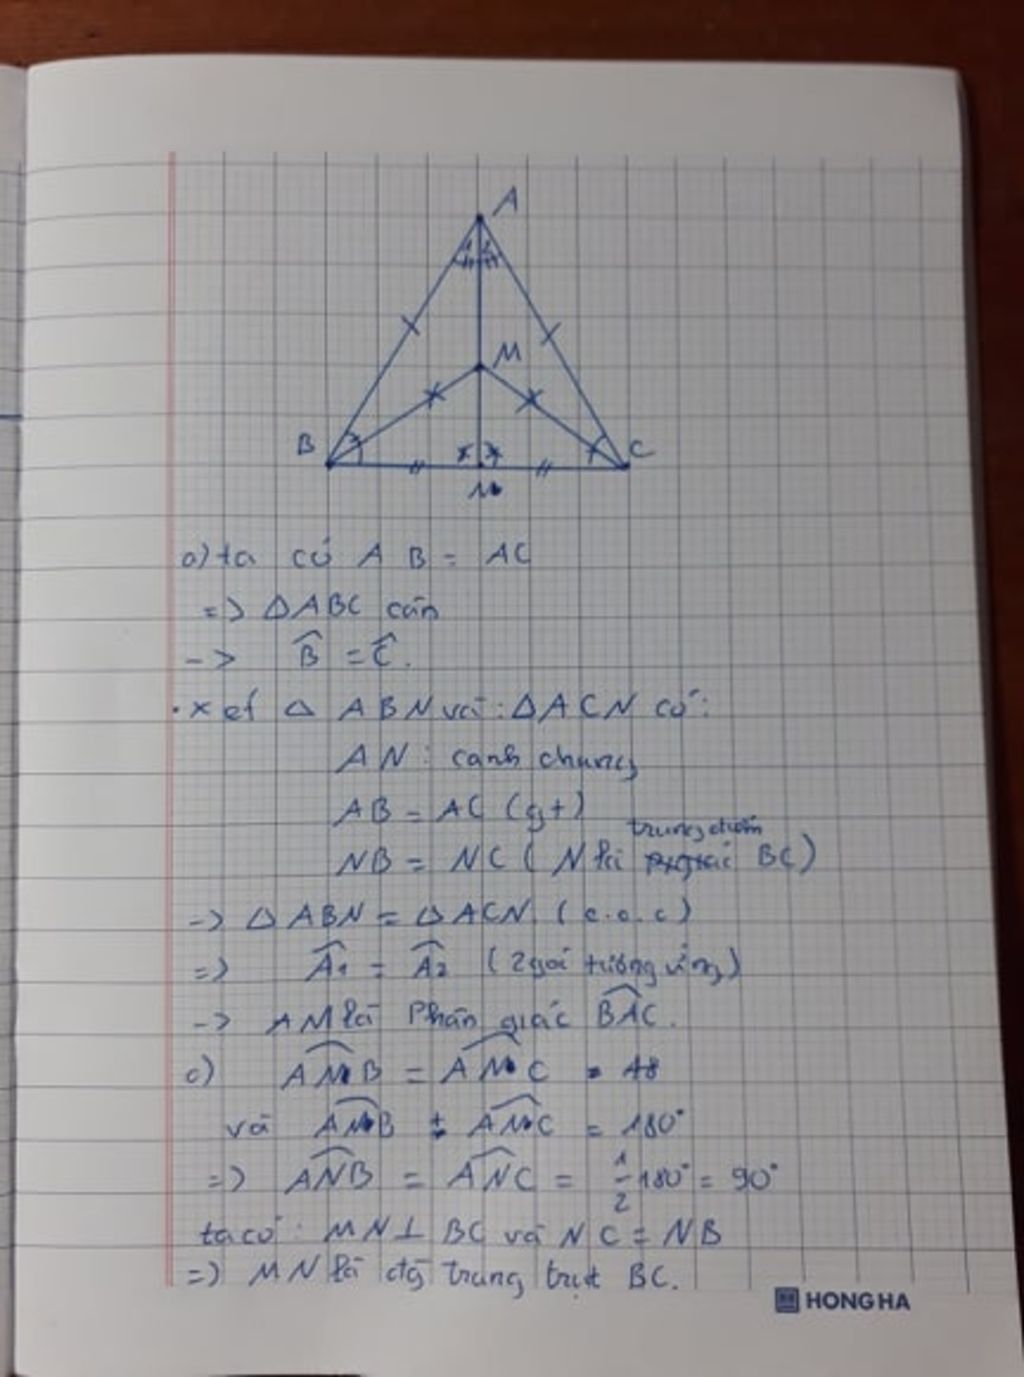 A
1 2
M
B
C
N
a) ta có AB = AC
=> ΔABC cân
-> B̂ = Ĉ.
. xet Δ ABN và : ΔACN có :
AN : canh chung
AB = AC (gt)
trung điểm
NB = NC ( N là BC)
-> ΔABN = ΔACN (c.c.c)
=> Â1 = Â2 (2 goi tương ứng)
-> AM là Phân giác BAC.
c) ANB = ANC = 18
và ANB + ANC = 180°
=> ANB = ANC = 1/2 180° = 90°
ta có : MN ⊥ BC và NC = NB
=> MN là đg trung trưt BC.
HONG HA